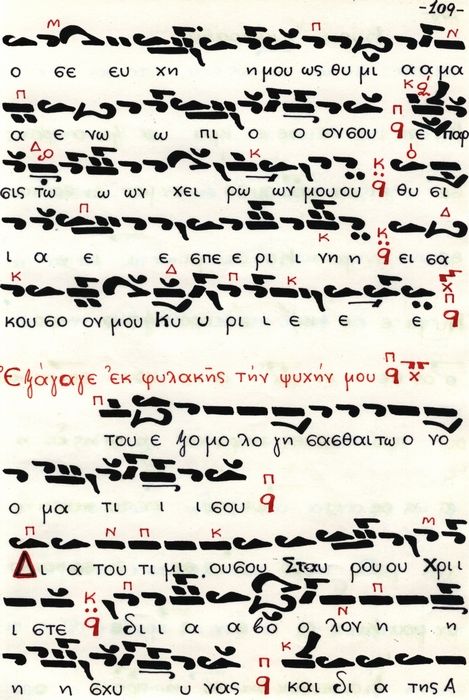 -109-
ο σε ευ χη η μου ως θυ μι α α μα
α ε νω ω πι ο ο ο ον σου ε παρ
σις τω ω ων χει ρω ων μου ου θυ σι
ι α ε ε σπε ε ρι ι νη η ει σα
κου σο ον μου Κυ υ ρι ι ε ε ε
Ἐξάγαγε ἐκ φυλακῆς τήν ψυχήν μου
του ε ξο μο λο γη σασθαι τω ο νο
ο μα τι ι ι σου
Δι α του τι μι ου σου Σταυ ρου ου Χρι ι
ι στε δι ι α α βο ο λον η η
η η σχυ υ νας και δι α της Α